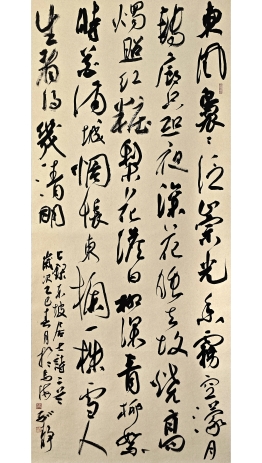 東風裊〻泛崇光香霧空濛月
轉廊只恐夜深花睡去故燒高
燭照紅糚梨花淡白柳深青柳絮
飛時花滿城惆悵東欄一株雪人
生看得幾清明
錄東坡居士詩二首
歲次乙巳春月於上海
靜